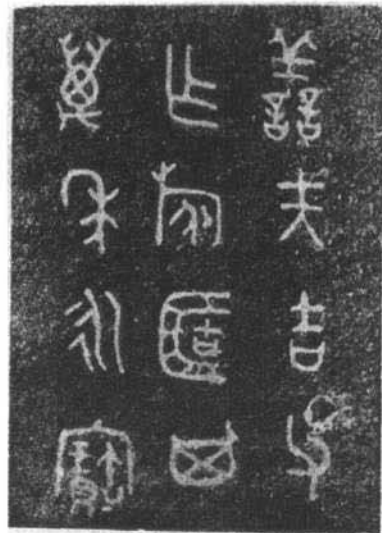 譱夫吉父
乍旅其
萬年永寶